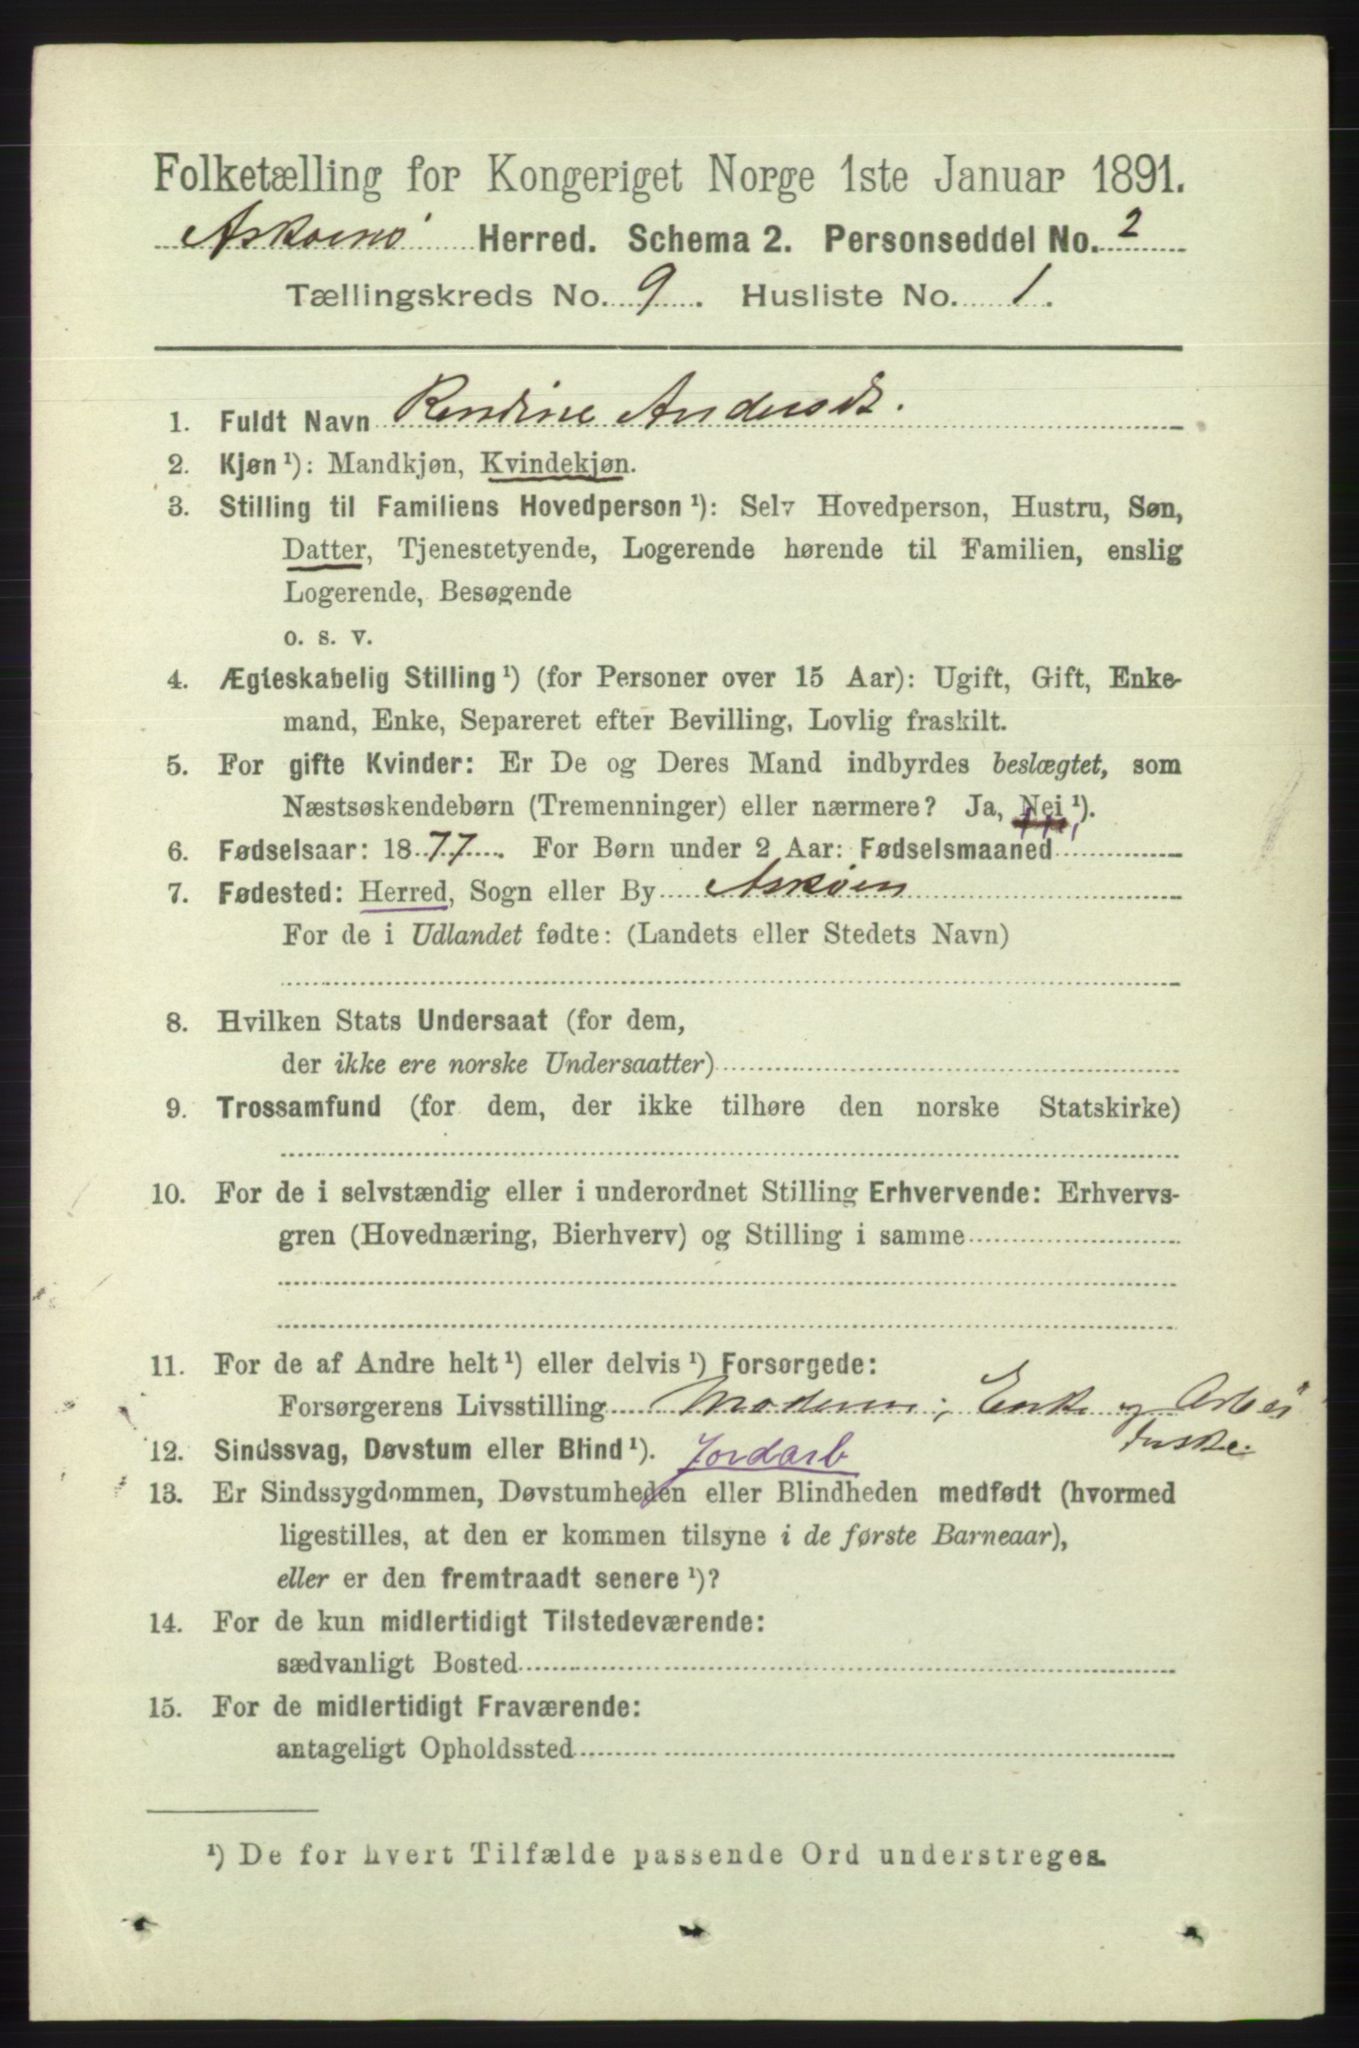 Folketælling for Kongeriget Norge 1ste Januar 1891.
Askøens Herred. Schema 2. Personseddel No. 2
Tællingskreds No. 9. Husliste No. 1.
1. Fuldt Navn Rendine Andersdt.
2. Kjøn ¹): Mandkjøn, Kvindekjøn.
3. Stilling til Familiens Hovedperson ¹): Selv Hovedperson, Hustru, Søn,
Datter, Tjenestetyende, Logerende hørende til Familien, enslig
Logerende, Besøgende
o. s. v.
4. Ægteskabelig Stilling ¹) (for Personer over 15 Aar): Ugift, Gift, Enke-
mand, Enke, Separeret efter Bevilling, Lovlig fraskilt.
5. For gifte Kvinder: Er De og Deres Mand indbyrdes beslægtet, som
Næstsøskendebørn (Tremenninger) eller nærmere? Ja, Nei ¹).
6. Fødselsaar: 1877. For Børn under 2 Aar: Fødselsmaaned
7. Fødested: Herred, Sogn eller By Askøen
For de i Udlandet fødte: (Landets eller Stedets Navn)
8. Hvilken Stats Undersaat (for dem,
der ikke ere norske Undersaatter)
9. Trossamfund (for dem, der ikke tilhøre den norske Statskirke)
10. For de i selvstændig eller i underordnet Stilling Erhvervende: Erhvervs-
gren (Hovednæring, Bierhverv) og Stilling i samme
11. For de af Andre helt ¹) eller delvis ¹) Forsørgede:
Forsørgerens Livsstilling Moderen; Enke og Arbei
derske.
12. Sindssvag, Døvstum eller Blind ¹). Jordarb
13. Er Sindssygdommen, Døvstumheden eller Blindheden medfødt (hvormed
ligestilles, at den er kommen tilsyne i de første Barneaar),
eller er den fremtraadt senere ¹)?
14. For de kun midlertidigt Tilstedeværende:
sædvanligt Bosted
15. For de midlertidigt Fraværende:
antageligt Opholdssted
¹) De for hvert Tilfælde passende Ord understreges.